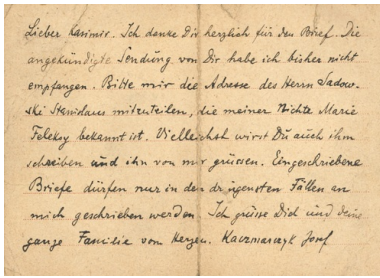 Lieber Kasimir. Ich danke Dir herzlich für den Brief. Die
angekündigte Sendung von Dir habe ich bisher nicht
empfangen. Bitte mir die Adresse des Herrn Sadow-
ski Stanislaus mitzuteilen, die meiner Nichte Marie
bekannt ist. Vielleicht wirst Du auch ihm
schreiben und ihn von mir grüssen. Eingeschriebene
Briefe dürfen nur in den dringensten Fällen an
mich geschrieben werden. Ich grüsse Dich und deine
ganze Familie vom Herzen. Kaczmarczyk Josef